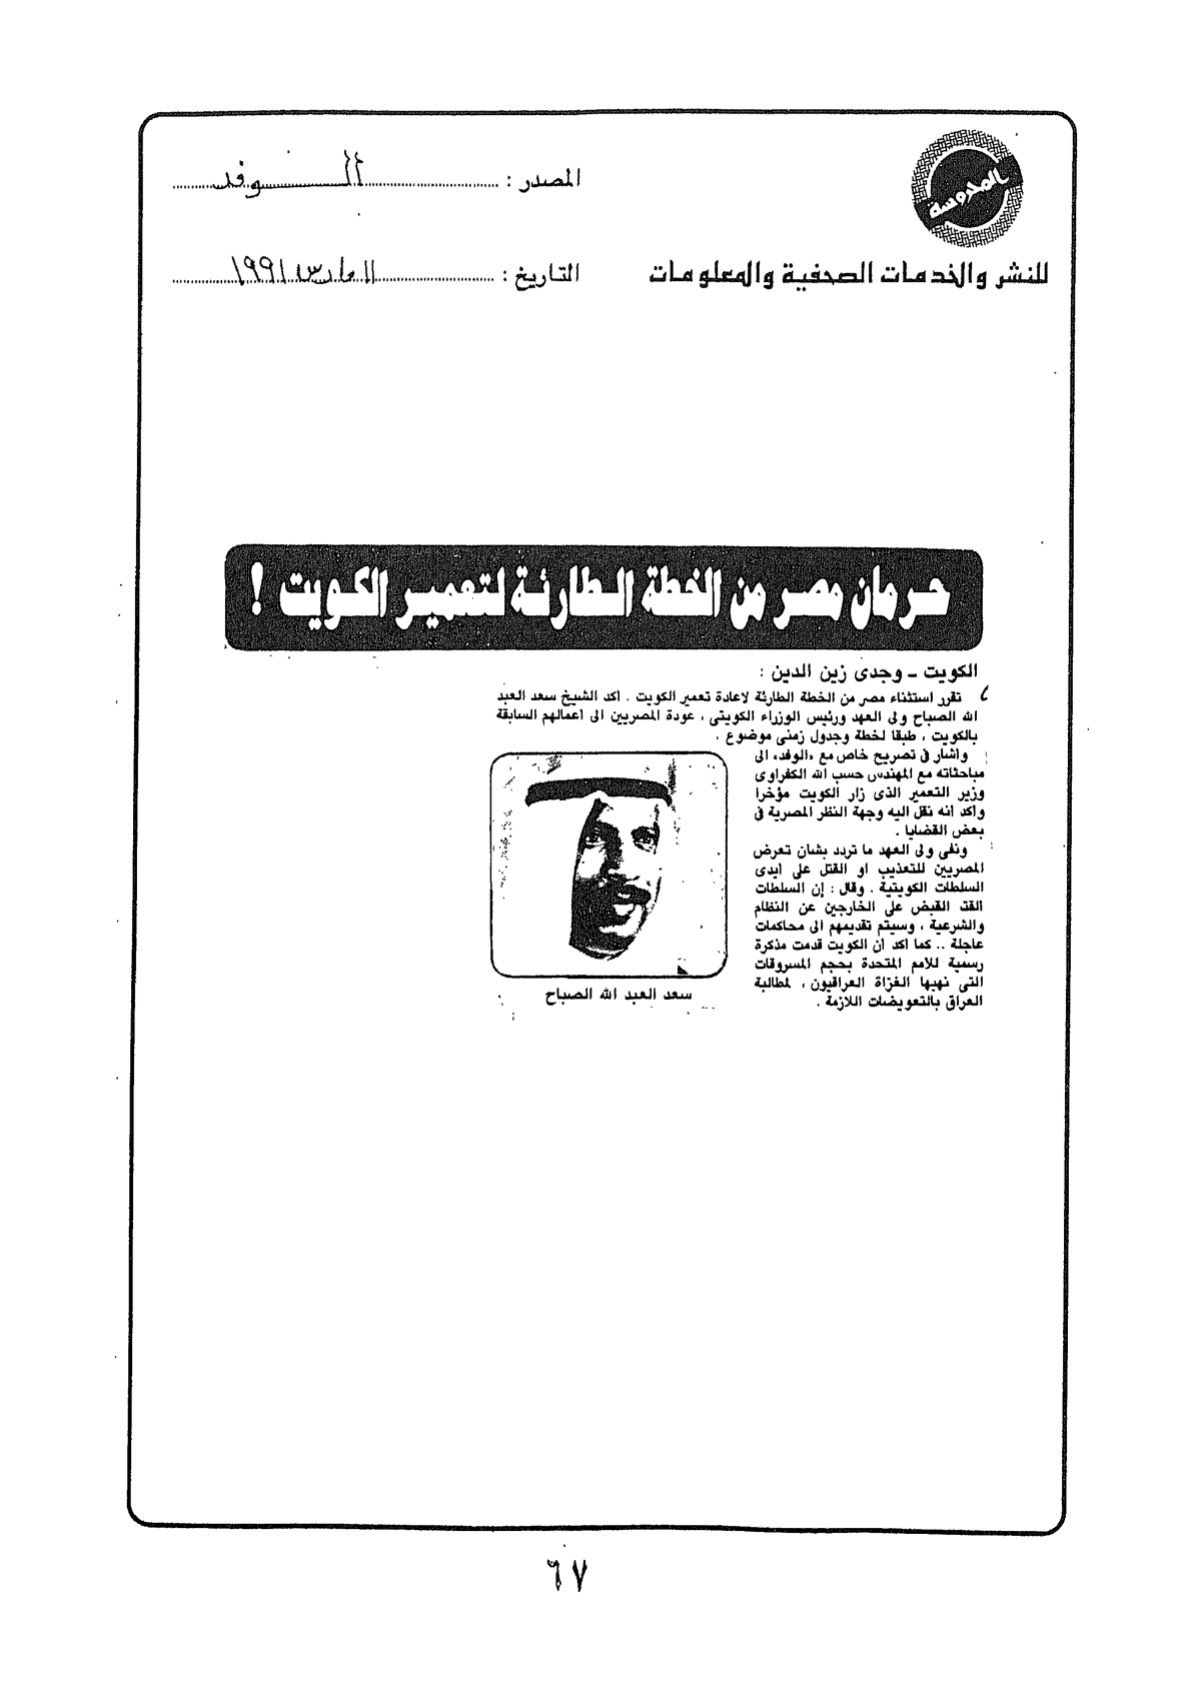 المحروسة
للنشر والخدمات الصحفية والمعلومات
المصدر : الوفد
التاريخ : ١١ مارس ١٩٩١
حرمان مصر من الخطة الطارئة لتعمير الكويت !
الكويت ـ وجدى زين الدين :
تقرر استثناء مصر من الخطة الطارئة لاعادة تعمير الكويت . اكد الشيخ سعد العبد
الله الصباح ولى العهد ورئيس الوزراء الكويتى ، عودة المصريين الى اعمالهم السابقة
بالكويت ، طبقا لخطة وجدول زمنى موضوع .
واشار فى تصريح خاص مع «الوفد» الى
مباحثاته مع المهندس حسب الله الكفراوى
وزير التعمير الذى زار الكويت مؤخرا
واكد انه نقل اليه وجهة النظر المصرية فى
بعض القضايا .
ونفى ولى العهد ما تردد بشان تعرض
المصريين للتعذيب او القتل على ايدى
السلطات الكويتية . وقال : إن السلطات
القت القبض على الخارجين عن النظام
والشرعية ، وسيتم تقديمهم الى محاكمات
عاجلة .. كما اكد ان الكويت قدمت مذكرة
رسمية للامم المتحدة بحجم المسروقات
التى نهبها الغزاة العراقيون ، لمطالبة
العراق بالتعويضات اللازمة .
سعد العبد الله الصباح
٦٧